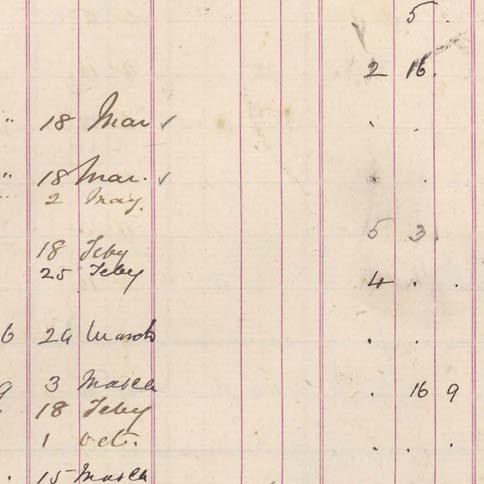 5 .
2 16.
" 18 Mar ✓ . .
" 18 Mar. ✓ . .
" 2 May.
5 3.
18 Feby
25 Feby 4 . .
6 29 March . .
9 3 March . 16 9
18 Feby
1 Oct. . . .
. 15 March